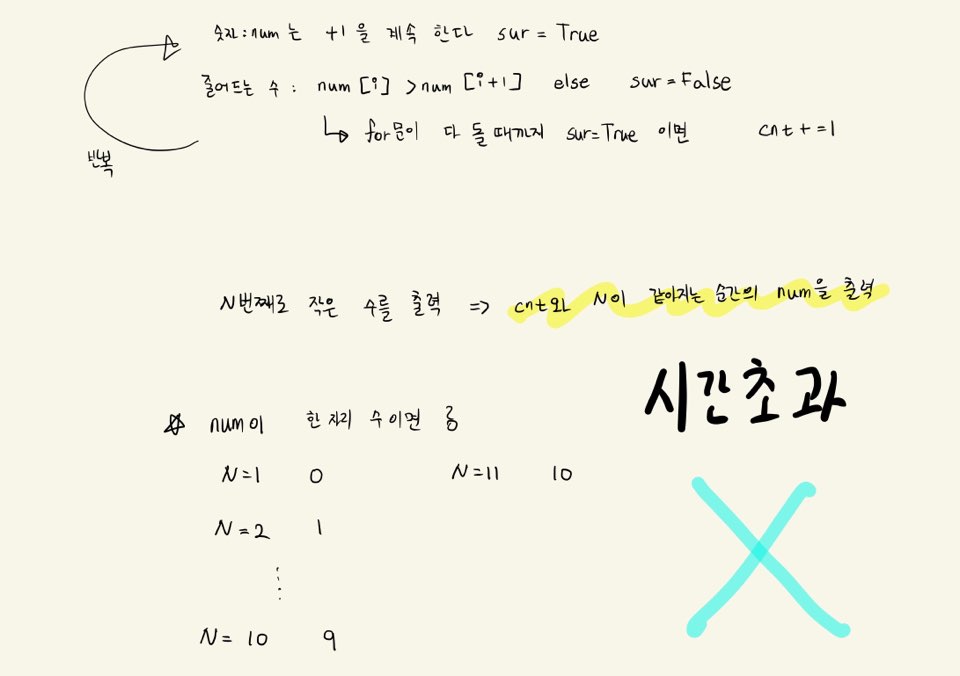 숫자:num는 +1을 계속 한다 sur = True
줄어드는 수 : num [i] > num [i+1] else sur = False
for문이 다 돌 때까지 sur=True 이면 cnt += 1
반복
N번째로 작은 수를 출력 => cnt와 N이 같아지는 순간의 num을 출력
시간초과
num이 한 자리 수 이면
N=1 0 N=11 10
N=2 1
N= 10 9